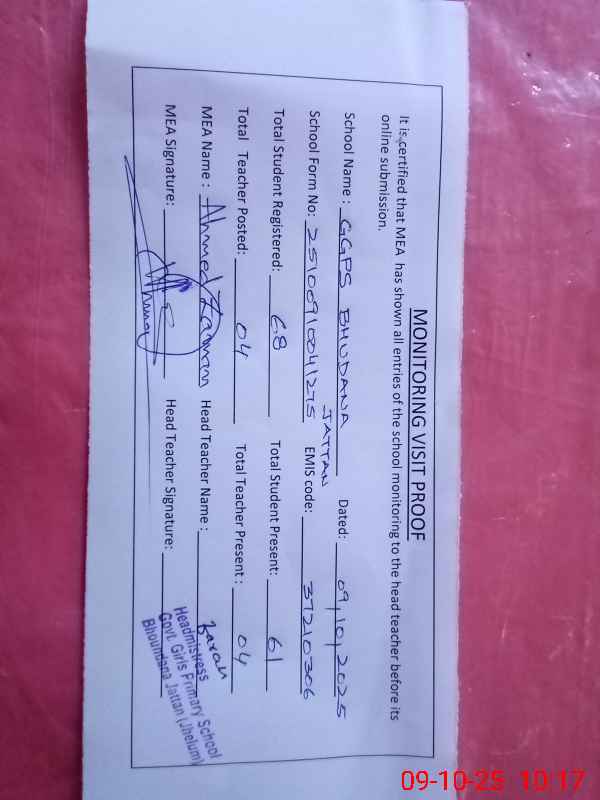 MONITORING VISIT PROOF
It is certified that MEA has shown all entries of the school monitoring to the head teacher before its
online submission.
School Name : GGPS BHUDANA JATTAN Dated: 09,10,2025
School Form No: 25100910041275 EMIS code: 37210306
Total Student Registered: 68 Total Student Present: 61
Total Teacher Posted: 04 Total Teacher Present : 04
MEA Name : Ahmed Zaman Head Teacher Name :
MEA Signature: Head Teacher Signature:
Headmistress
Govt. Girls Primary School
Bhoundana Jattan (Jhelum)
09-10-25 10:17